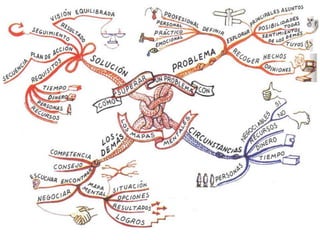 COMO SUPERAR UN PROBLEMA CON
LOS MAPAS MENTALES
SOLUCIÓN
VISIÓN EQUILIBRADA
RESULTADO
SEGUIMIENTO
PLAN DE ACCIÓN
SECUENCIA
REQUISITOS
TIEMPO
DINERO
PERSONAS
RECURSOS
PROBLEMA
DEFINIR
PROFESIONAL
PERSONAL
PRÁCTICO
EMOCIONAL
EXPLORAR
PRINCIPALES ASUNTOS
POSIBILIDADES
TODAS
SENTIMIENTOS
DE LOS DEMÁS
TUYOS
RECOGER
HECHOS
OPINIONES
CIRCUNSTANCIAS
NEGOCIABLES
SI
NO
RECURSOS
DINERO
TIEMPO
PERSONAS
LOS DEMÁS
COMPETENCIA
CONSEJO
ESCUCHAR
ENCONTRAR
NEGOCIAR
MAPA MENTAL
SITUACIÓN
OPCIONES
RESULTADOS
LOGROS